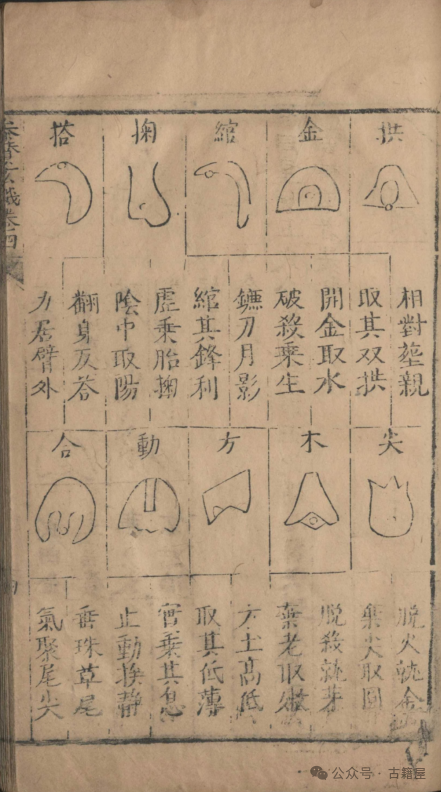 拱
金
綰
掬
搭
相對塋親
取其双拱
開金取水
破殺乘生
鐮刀月影
綰其鋒利
虛乘胎掬
陰中取陽
翻身反荅
力居臂外
尖
木
方
動
合
脫火就金
棄尖取圓
脫殺就芽
棄老取嫩
方土高低
取其低薄
乘其息
止動挨靜
垂珠草尾
氣聚尾尖
玄機卷四
公众号 · 古籍屋